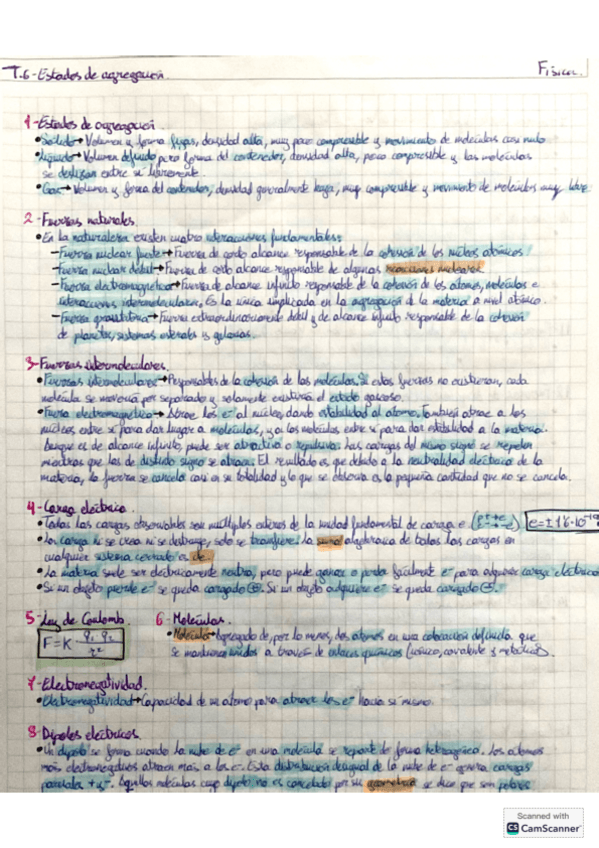 T.6-Estados de agregación.
Física.
1-Estados de agregación.
•Sólido→Volumen y forma fijas, densidad alta, muy poco compresible y movimiento de moléculas casi nulo
•Líquido→Volumen definido pero forma del contenedor, densidad alta, poco compresible y las moléculas
se deslizan entre sí libremente.
•Gas→Volumen y forma del contenedor, densidad generalmente baja, muy compresible y movimiento de moléculas muy libre.
2-Fuerzas naturales.
•En la naturaleza existen cuatro interacciones fundamentales:
-Fuerza nuclear fuerte→Fuerza de corto alcance responsable de la cohesión de los núcleos atómicos
-Fuerza nuclear débil→Fuerza de corto alcance responsable de algunas reacciones nucleares
-Fuerza electromagnética→Fuerza de alcance infinito responsable de la cohesión de los átomos, moléculas e
interacciones intermoleculares. Es la única implicada en la agregación de la materia a nivel atómico.
-Fuerza gravitatoria→Fuerza extraordinariamente débil y de alcance infinito responsable de la cohesión
de planetas, sistemas estelares y galaxias.
3-Fuerzas intermoleculares.
•Fuerzas intermoleculares→Responsables de la cohesión de las moléculas. Si estas fuerzas no existieran, cada
molécula se movería por separado y solamente existiría el estado gaseoso.
•Fuerza electromagnética→Atrae los e⁻ al núcleo, dando estabilidad al átomo. También atrae a los
núcleos entre sí para dar lugar a moléculas, y a las moléculas entre sí para dar estabilidad a la materia.
Aunque es de alcance infinito, puede ser atractiva o repulsiva. Las cargas del mismo signo se repelen
mientras que las de distinto signo se atraen. El resultado es que debido a la neutralidad eléctrica de la
materia, la fuerza se cancela casi en su totalidad y lo que se observa es la pequeña cantidad que no se cancela.
4-Carga eléctrica.
•Todas las cargas observables son múltiplos enteros de la unidad fundamental de carga e
•La carga ni se crea ni se destruye, solo se transfiere. La suma algebraica de todas las cargas en
cualquier sistema cerrado es
•La materia suele ser eléctricamente neutra, pero puede ganar o perder fácilmente e⁻ para adquirir carga eléctrica
•Si un objeto pierde e⁻ se queda cargado ⊕. Si un objeto adquiere e⁻ se queda cargado ⊖.
5-Ley de Coulomb.
F=K q₁ q₂ / r²
6-Moléculas.
•Molécula→Agregado de, por lo menos, dos átomos en una colocación definida que
se mantienen unidos a través de enlaces químicos (iónico, covalente y metálico).
7-Electronegatividad.
•Electronegatividad→Capacidad de un átomo para atraer los e⁻ hacia sí mismo.
8-Dipolos eléctricos.
•Un dipolo se forma cuando la nube de e⁻ en una molécula se reparte de forma heterogénea. Los átomos
más electronegativos atraen más a los e⁻. Esta distribución desigual de la nube de e⁻ genera cargas
parciales + y -. Aquellas moléculas cuyo dipolo no es cancelado por su geometría se dice que son polares
Scanned with
CS CamScanner